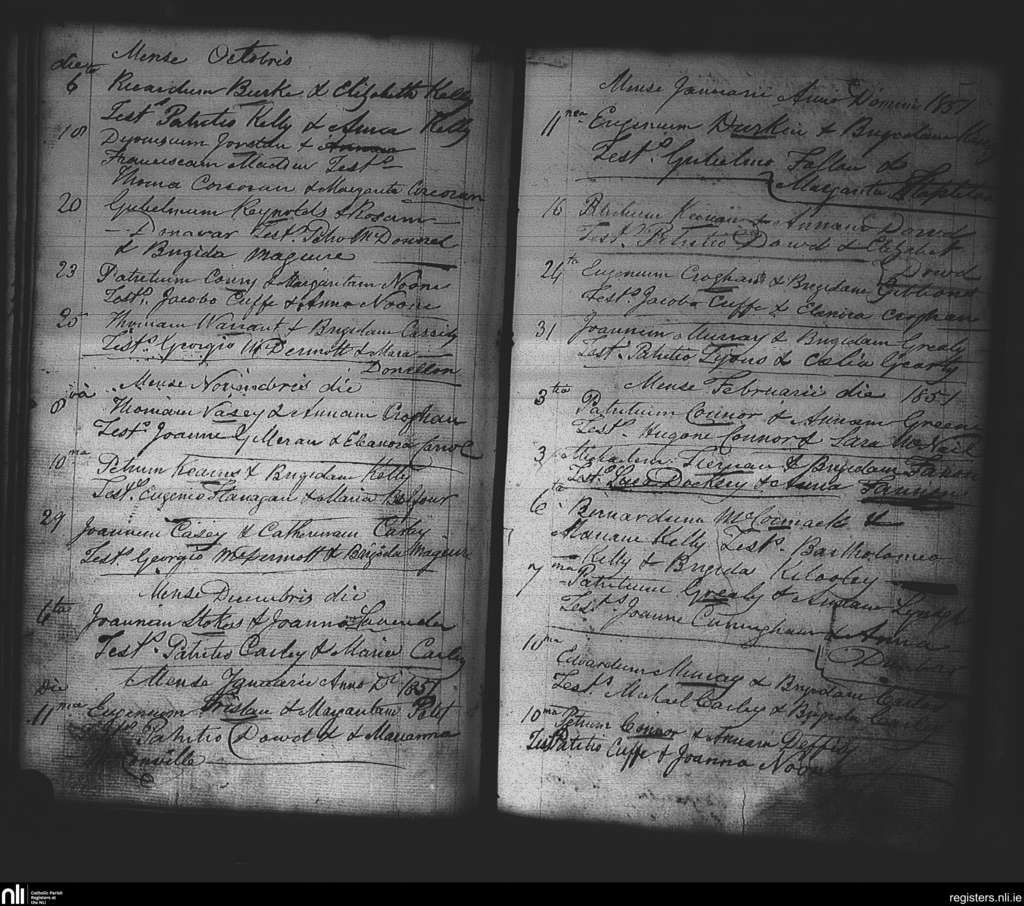 Mense Octobris
die
6 to Ricardum Burke & Elizabeth Kelly
Test. Patritio Kelly & Anna Kelly
18 Dyonisium Jordan & Anna
Franciscam Madden Test.
Thoma Corcoran & Margarita Corcoran
20 Gulielmum Reynolds & Rosam
Donavar Test. McDonnel
& Brigida Maguire
23 Patritium Conry & Margaritam Noone
Test. Jacobo Cuffe & Anna Noone
25 Thomam Warrant & Brigidam Cassidy
Test. Georgio McDermott & Maria
Donellon
Mense Novembris die
8 va Thomam Vasey & Annam Croghan
Test. Joanne Gilleran & Eleanora Carrol
10 ma Petrum Kearns & Brigidam Kelly
Test. Eugenio Flanagan & Maria Balfour
29 Joannem Casey & Catherinam Carley
Test. Georgio McDermott & Brigida Maguire
Mense Decembris die
6 ta Joannam Stokes & Joanna Lavender
Test. Patritio Carley & Maria Carley
Mense Januarii Anno D. 1851
Die
11 ma Eugenium & Margaritam
Patritio Dowd & Marianna

Mense Januarii Anno Domini 1851
11 Eugenium Durkin & Brigidam
Test. Gulielmo Fallon &
Margarita
16 Keenan & Annam Dowd
Test. Patritio Dowd & Elizabet
Dowd
24 th Eugenium Croghan & Brigidam Gibbons
Test. Jacobo Cuffe & Elenira Croghan
31 Joannem Murray & Brigidam Grealy
Test. Patritio Lyons & Caelia Gearty
Mense Februarii die 1851
3 tia Patritium Connor & Annam Greene
Test. Hugone Connor & Sara McNeil
3 Michaelem Tiernan & Brigidam Fannon
Test. Luca Docksey & Anna Fannon
6 ta Bernardum McCormack &
Mariam Kelly Test. Bartholomeo
Kelly & Brigida Kilooley
7 ma Patritium Grealy & Annam
Test. Joanne Cuningham & Anna
10 ma Edvardum Murray & Brigidam
Test. Michael Carley & Brigida
10 ma Petrum Connor & Annam
Test Patritio Cuffe & Joanna Noone
nli
Catholic Parish
Registers at
the NLI
registers.nli.ie